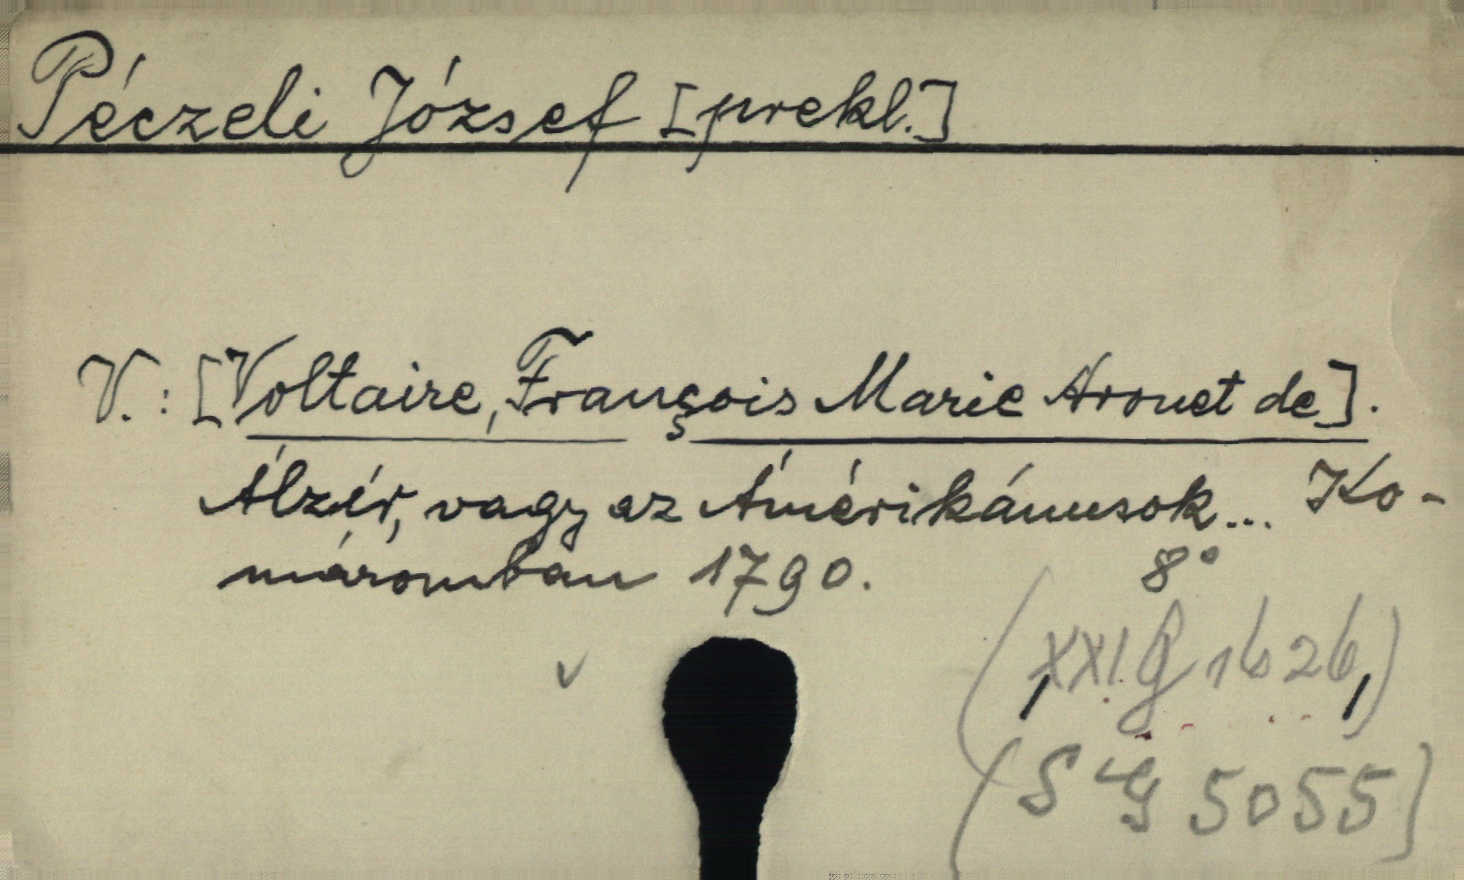 Péczeli József [prekl.]
V.: [Voltaire, François Marie Arouet de].
Álzír, vagy az Ámérikánusok... Ko-
máromban 1790. 8°
(XXI G 1626)
(S G 5055)